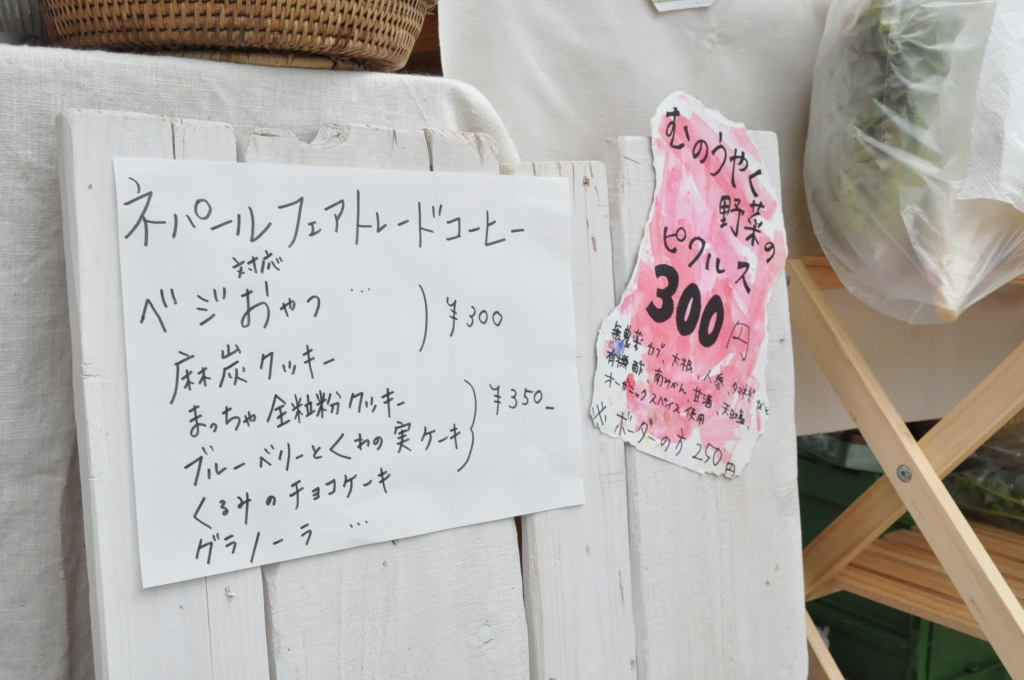 ネパールフェアトレードコーヒー
対応
ベジおやつ …
¥300
麻炭クッキー
まっちゃ全粒粉クッキー
¥350-
ブルーベリーとくわの実ケーキ
くるみのチョコケーキ
グラノーラ …
むのうやく
野菜の
ピクルス
300円
無農薬カブ、大根、人参、など
有機酢、南みかん、甘酒、天日塩、
オーガニックスパイス使用
※ボーダーの方250円